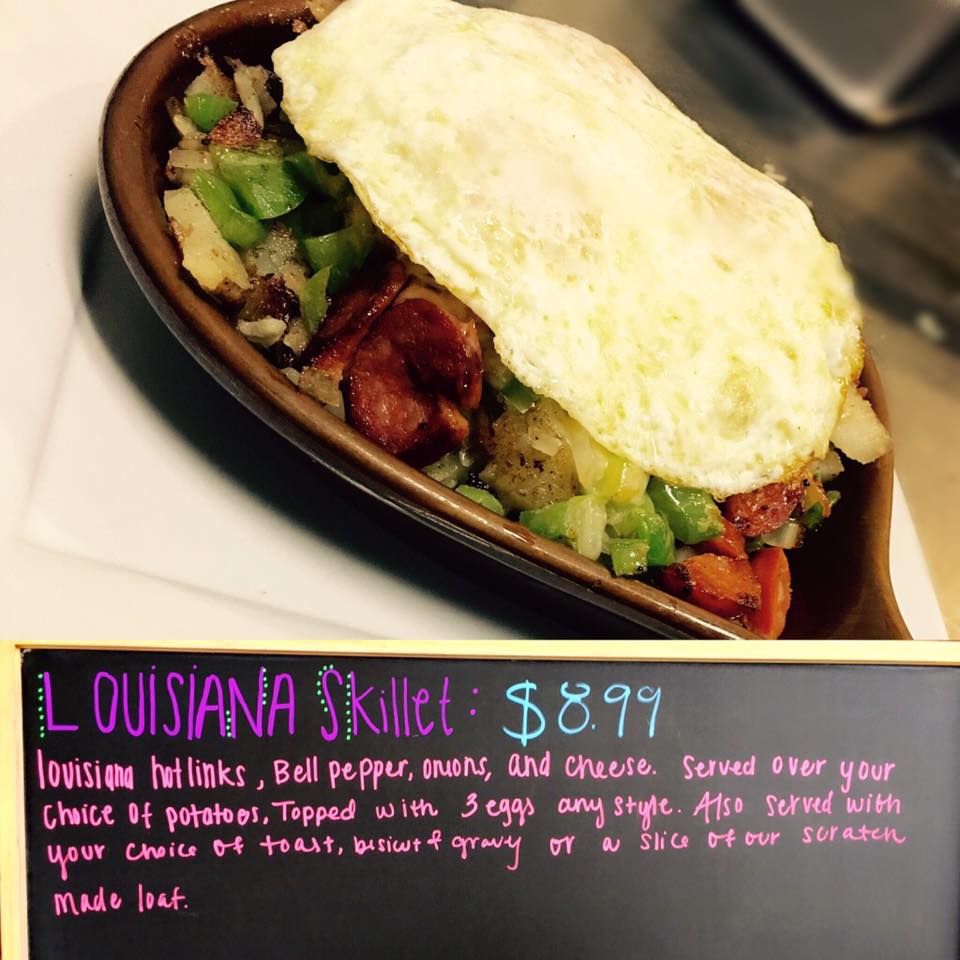 LOUISIANA Skillet: $8.99
louisiana hotlinks, Bell pepper, onions, and cheese. Served over your
choice of potatoes. Topped with 3 eggs any style. Also served with
your choice of toast, bisiut & gravy or a slice of our scratch
made loaf.